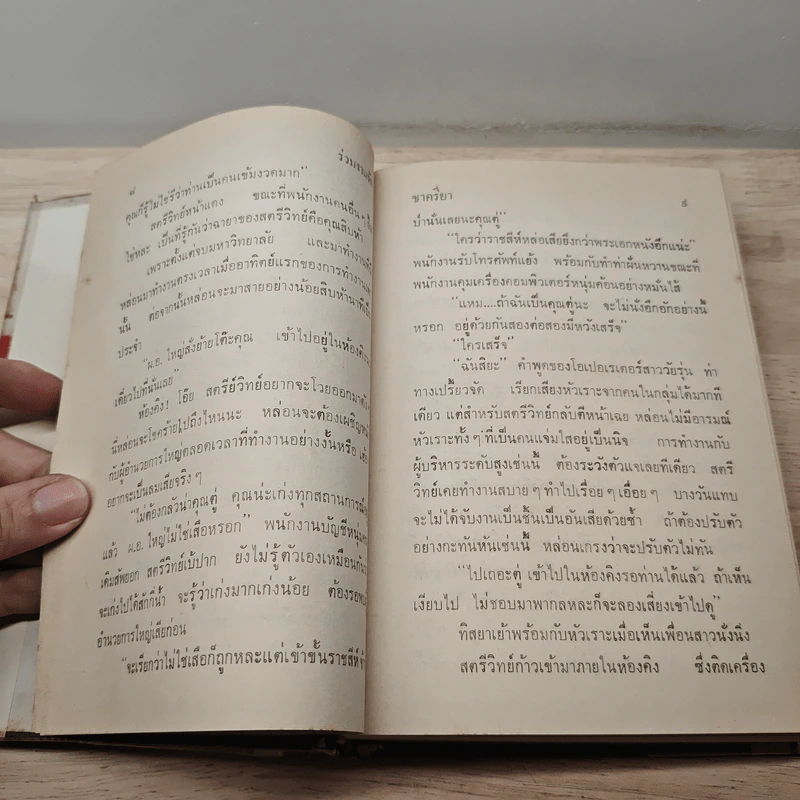 ๘
คุณก็รู้ไม่ใช่รึว่าท่านเป็นคนเข้มงวดมาก"
สตรีวิทย์หน้าแดง ขณะที่พนักงานคนอื่น ๆ
ใช่หละ เป็นที่รู้กันว่าฉายาของสตรีวิทย์คือคุณสิบห้า
เพราะตั้งแต่จบมหาวิทยาลัย และมาทำงานที่
หล่อนมาทำงานตรงเวลาเมื่ออาทิตย์แรกของการทำงาน
นั้น ต่อจากนั้นหล่อนจะมาสายอย่างน้อยสิบห้านาที
ประจำ
"ผ.อ. ใหญ่สั่งย้ายโต๊ะคุณ เข้าไปอยู่ในห้องคิง
เดี๋ยวไปที่นั่นเลย"
ห้องคิง! โอ๊ย สตรีย์วิทย์อยากจะโวยออกมาดัง
นี่หล่อนจะโชคร้ายไปถึงไหนนะ หล่อนจะต้องเผชิญ
กับผู้อำนวยการใหญ่ตลอดเวลาที่ทำงานอย่างงั้นหรือ
อยากจะเป็นลมเสียจริง ๆ
"ไม่ต้องกลัวน่าคุณตู่ คุณน่ะเก่งทุกสถานการณ์
แล้ว ผ.อ. ใหญ่ไม่ใช่เสือหรอก" พนักงานบัญชีหนุ่ม
เดิมสัพยอก สตรีวิทย์เบ้ปาก ยังไม่รู้ตัวเองเหมือนกัน
จะเก่งไปได้สักกี่น้ำ จะรู้ว่าเก่งมากเก่งน้อย ต้องรอพบ
อำนวยการใหญ่เสียก่อน
"จะเรียกว่าไม่ใช่เสือก็ถูกหละแต่เข้าขั้นราชสีห์
ชาคริยา
๙
บ้านั่นเลยนะคุณตู่"
"ใครว่าราชสีห์หล่อเสียยิ่งกว่าพระเอกหนังอีกแน่ะ"
พนักงานรับโทรศัพท์แย้ง พร้อมกับทำท่าฝันหวานขณะที่
พนักงานคุมเครื่องคอมพิวเตอร์หนุ่มค้อนอย่างหมั่นไส้
"แหม....ถ้าฉันเป็นคุณตู่นะ จะไม่นั่งอึกอักอย่างนี้
หรอก อยู่ด้วยกันสองต่อสองมีหวังเสร็จ"
"ใครเสร็จ"
"ฉันสิยะ" คำพูดของโอเปอเรเตอร์สาววัยรุ่น ท่า
ทางเปรี้ยวจัด เรียกเสียงหัวเราะจากคนในกลุ่มได้มากที
เดียว แต่สำหรับสตรีวิทย์กลับตีหน้าเฉย หล่อนไม่มีอารมณ์
หัวเราะทั้ง ๆ ที่เป็นคนแจ่มใสอยู่เป็นนิจ การทำงานกับ
ผู้บริหารระดับสูงเช่นนี้ ต้องระวังตัวแจเลยทีเดียว สตรี
วิทย์เคยทำงานสบาย ๆ ทำไปเรื่อย ๆ เอื่อย ๆ บางวันแทบ
จะไม่ได้จับงานเป็นชิ้นเป็นอันเสียด้วยซ้ำ ถ้าต้องปรับตัว
อย่างกะทันหันเช่นนี้ หล่อนเกรงว่าจะปรับตัวไม่ทัน
"ไปเถอะตู่ เข้าไปในห้องคิงรอท่านได้แล้ว ถ้าเห็น
เงียบไป ไม่ชอบมาพากลหละก็จะลองเสี่ยงเข้าไปดู"
ทิสยาเย้าพร้อมกับหัวเราะเมื่อเห็นเพื่อนสาวนั่งนิ่ง
สตรีวิทย์ก้าวเข้ามาภายในห้องคิง ซึ่งติดเครื่อง